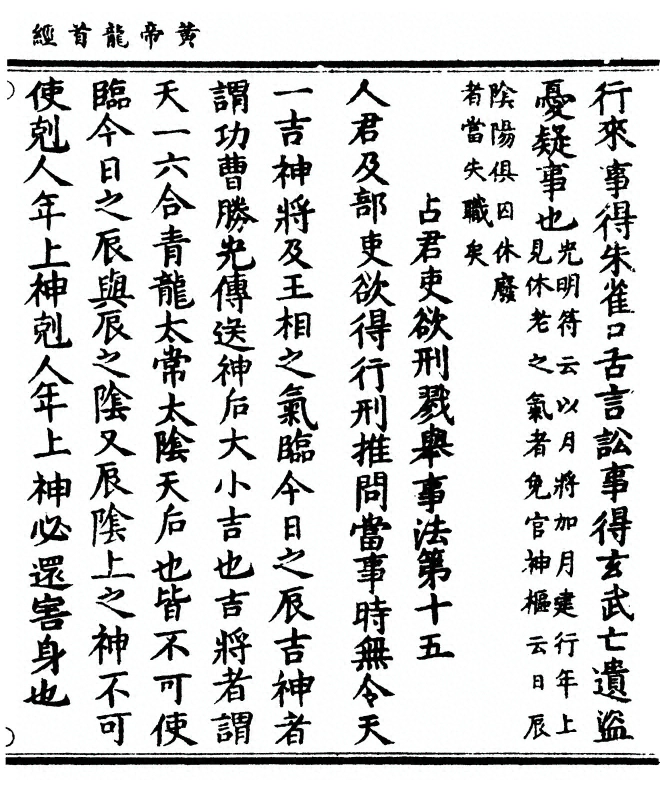 黄帝龍首經
行來事得朱雀口舌言訟事得玄武亡遺盜
憂疑事也光明符云以月將加月建行年上
見休老之氣者免官神樞云日辰
陰陽俱囚休廢
者當失職矣
占君吏欲刑戮舉事法第十五
人君及部吏欲得行刑推問當事時無令天
一吉神將及王相之氣臨今日之辰吉神者
謂功曹勝光傳送神后大小吉也吉將者謂
天一六合青龍太常太陰天后也皆不可使
臨今日之辰與辰之陰又辰陰上之神不可
使剋人年上神剋人年上神必還害身也